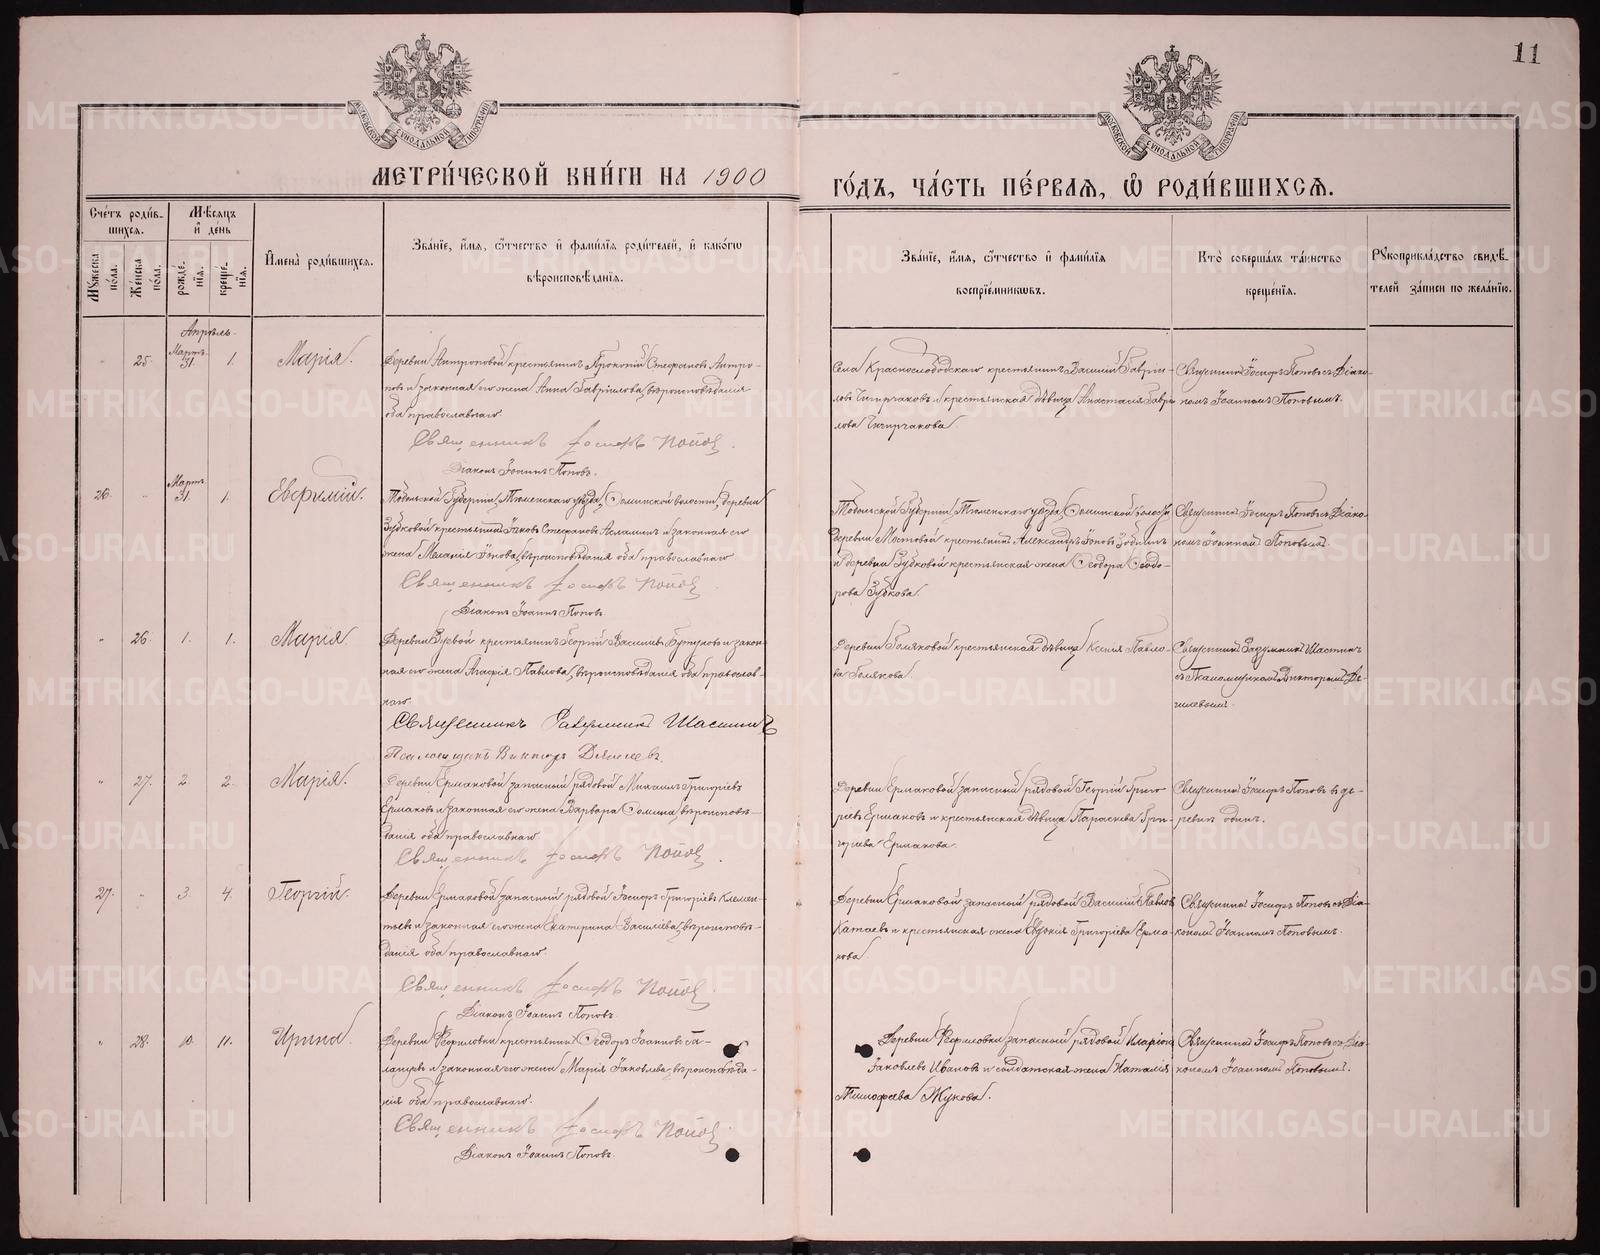 11
МЕТРИ́ЧЕСКОЙ КНИ́ГИ НА 1900
ГО́ДЪ, ЧА́СТЬ ПЕ́РВАѦ, Ѿ РОДИ́ВШИХСѦ.
Сче́тъ роди́в-
шихсѧ.
Мѣ́сѧцъ
и҆ де́нь
Мꙋ́жеска по́ла.
Же́нска по́ла.
рожде́-
нїѧ.
креще́-
нїѧ.
И҆мена̀ роди́вшихсѧ.
Зва́нїе, и҆́мѧ, ѻ҆́тчество и҆ фами́лїѧ роди́телей, и҆ како́гѡ
вѣроисповѣ́данїѧ.
Зва́нїе, и҆́мѧ, ѻ҆́тчество и҆ фами́лїѧ
воспрїе́мникѡвъ.
Кто̀ соверша́лъ та́инство
креще́нїѧ.
Рꙋкоприкла́дство свидѣ́-
телей за́писи по жела́нїю.
Апрѣль.
" 25. Мартъ 31. 1. Марія.
Деревни Антроповой крестьянинъ Прокопій Стефановъ Антро-
повъ и законная его жена Анна Гаврилова, вѣроисповѣданія
оба православнаго.
Священникъ Іосифъ Поповъ.
Діаконъ Іоаннъ Поповъ.
Села Краснослободскаго крестьянинъ Василій Гаври-
ловъ Чигирчаковъ и крестьянская дѣвица Анастасія Гаври-
лова Чигирчакова
Священникъ Іосифъ Поповъ съ Діако-
номъ Іоанномъ Поповымъ.
26. " Мартъ 31. 1. Евфимій.
Тобольской Губерніи, Тюменскаго уѣзда, волости, деревни
Зубковой крестьянинъ Іаковъ Стефановъ и законная его
жена Меланія вѣроисповѣданія оба православнаго
Священникъ Іосифъ Поповъ
Діаконъ Іоаннъ Поповъ
Тобольской Губерніи, Тюменскаго уѣзда, волости
деревни Мостовой крестьянинъ Александръ
и деревни Зубковой крестьянская жена Ѳеодора Ѳеодо-
рова Зубкова.
Священникъ Іосифъ Поповъ съ Діако-
номъ Іоанномъ Поповымъ
" 26. 1. 1. Марія
Деревни крестьянинъ Георгій Васильевъ и закон-
ная его жена Павлова, вѣроисповѣданія оба православ-
наго.
Священникъ Шастинъ
Псаломщикъ Викторъ
Деревни Голяковой крестьянская дѣвица Ксенія Павло-
ва Голякова.
Священникъ Шастинъ
съ Псаломщикомъ Викторомъ
" 27. 2. 2. Марія.
Деревни Ермаковой запасный рядовой Михаилъ Григоріевъ
Ермаковъ и законная его жена Варвара Ѳомина, вѣроисповѣ-
данія оба православнаго.
Священникъ Іосифъ Поповъ.
Деревни Ермаковой запасный рядовой Георгій Григо-
ріевъ Ермаковъ и крестьянская дѣвица Параскева Гри-
горіева Ермакова.
Священникъ Іосифъ Поповъ въ де-
ревнѣ одинъ.
27. " 3. 4. Георгій.
Деревни Ермаковой запасный рядовой Іосифъ Григоріевъ Клемен-
тьевъ и законная его жена Екатерина Васильева, вѣроисповѣ-
данія оба православнаго.
Священникъ Іосифъ Поповъ.
Діаконъ Іоаннъ Поповъ.
Деревни Ермаковой запасный рядовой Василій Павловъ
Катаевъ и крестьянская жена Евдокія Григоріева Ерма-
кова.
Священникъ Іосифъ Поповъ съ Діа-
кономъ Іоанномъ Поповымъ.
" 28. 10. 11. Ирина.
Деревни Ѳефиловки крестьянинъ Ѳеодоръ Іоанновъ Га-
и законная его жена Марія Іаковлева, вѣроисповѣда-
нія оба православнаго.
Священникъ Іосифъ Поповъ
Діаконъ Іоаннъ Поповъ.
Деревни Ѳефиловки запасный рядовой Иларіонъ
Іаковлевъ Ивановъ и солдатская жена Наталія
Тимофеева Жукова.
Священникъ Іосифъ Поповъ съ Діа-
кономъ Іоанномъ Поповымъ.
METRIKI.GASO-URAL.RU